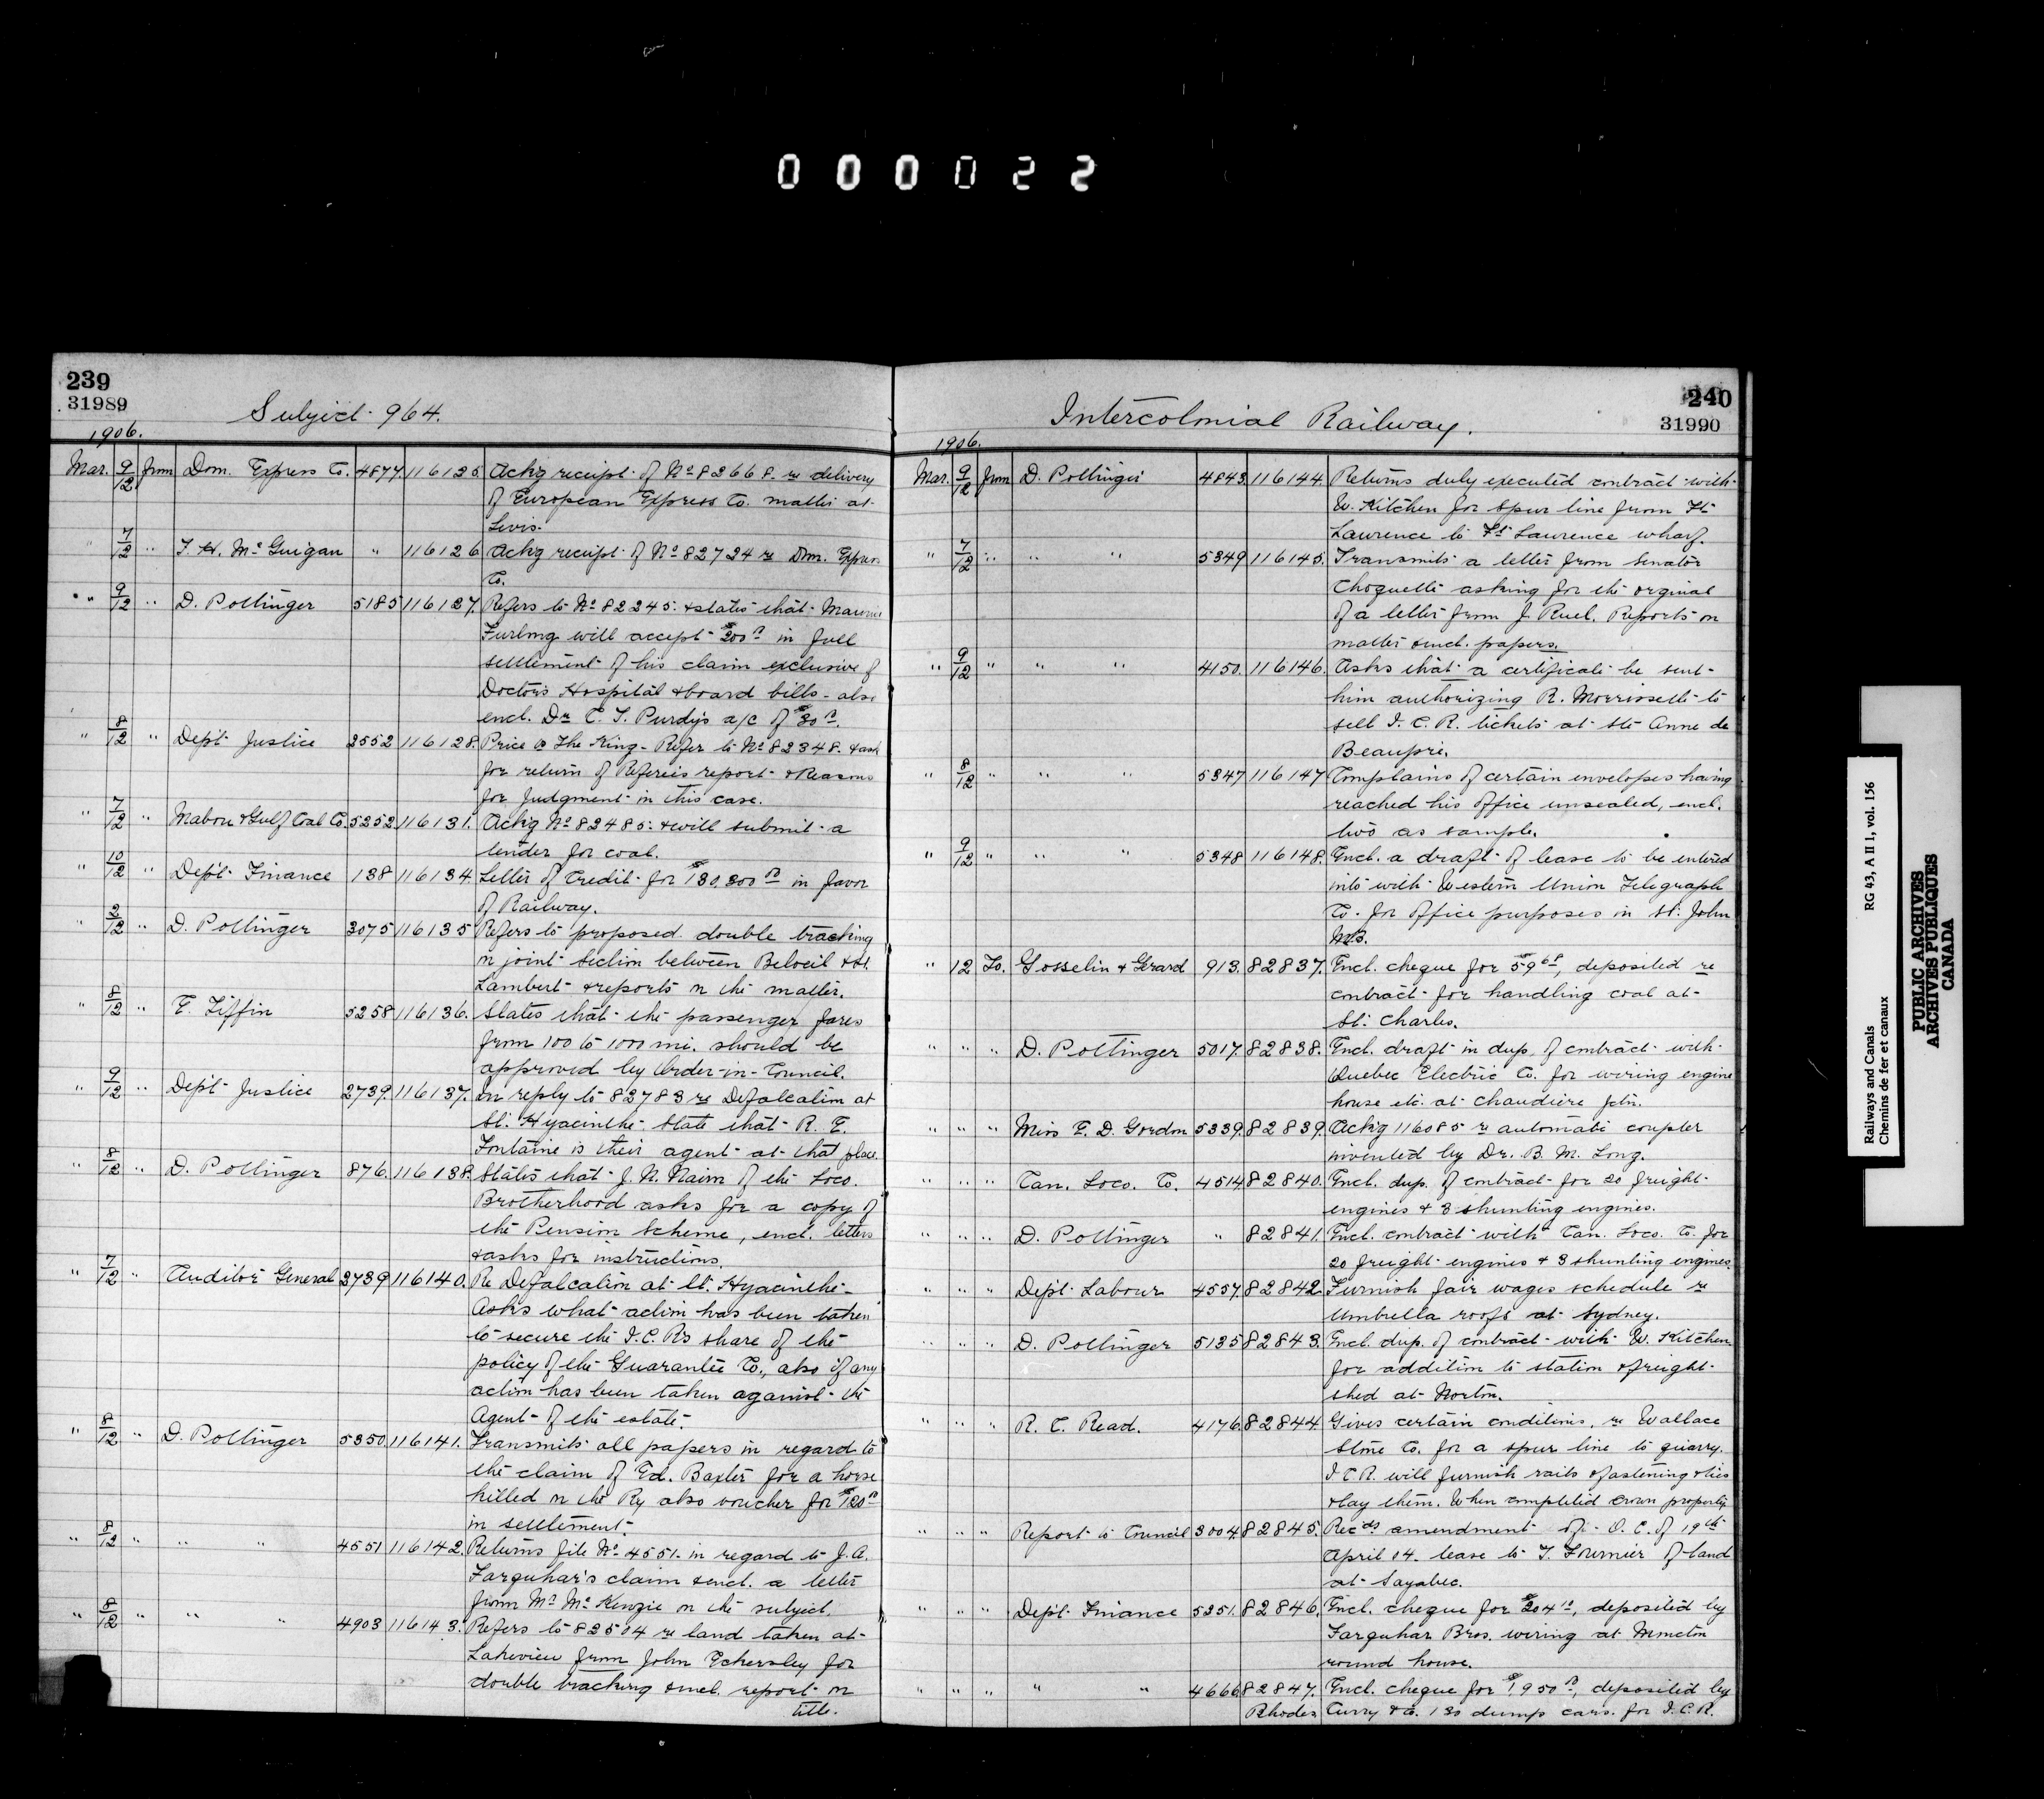 000022
239
31989
Subject 964.
1906.
Mar. 9/12 from Dom. Express Co. 4877. 116125. Ackg receipt of No 82668. re delivery
of European Express Co. matter at
Levis.
" 7/12 " F. H. McGuigan " 116126 Ackg receipt of No 82724 re Dom. Express
Co.
" 9/12 " D. Pottinger 5185 116127. Refers to No 82245. & states that Maurice
Furlong will accept $200 00 in full
settlement of his claim exclusive of
Doctor's Hospital & board bills - also
encl. Dr C. T. Purdy's a/c of $30 00.
" 8/12 " Dept Justice 2552 116128. Price vs The King - Refer to No 82348. & ask
for return of Referee's report & Reasons
for Judgment in this case.
" 7/12 " Mabou & Gulf Coal Co. 5252. 116131. Ackg No 82485. & will submit a
tender for coal.
" 10/12 " Dept Finance 138 116134. Letter of Credit for $130,300 00 in favor
of Railway.
" 2/12 " D. Pottinger 3075 116135 Refers to proposed double tracking
on joint section between Beloeil & St.
Lambert & reports on the matter.
" 8/12 " E. Tiffin 5258 116136. States that the passenger fares
from 100 to 1000 mi. should be
approved by Order-in-Council.
" 9/12 " Dept Justice 2739. 116137. In reply to 82783 re Defalcation at
St. Hyacinthe - State that R. E.
Fontaine is their agent at that place.
" 8/12 " D. Pottinger 876. 116138. States that J. N. Nairn of the Loco.
Brotherhood asks for a copy of
the Pension Scheme, encl. letters
& asks for instructions.
" 7/12 " Auditor General 2739 116140. Re Defalcation at St. Hyacinthe -
Asks what action has been taken
to secure the I.C.R's share of the
policy of the Guarantee Co., also if any
action has been taken against the
Agent of the estate.
" 8/12 " D. Pottinger 5350 116141. Transmits all papers in regard to
the claim of Ed. Baxter for a horse
killed on the Ry also voucher for $120 00
in settlement.
" 8/12 " " " 4551 116142. Returns file No 4551. in regard to J.A.
Farquhar's claim & encl. a letter
from Mr McKenzie on the subject.
" 8/12 " " " 4903 116143. Refers to 82504 re land taken at
Lakeview from John Eckersley for
double tracking & encl. report on
title.
240
31990
Intercolonial Railway.
1906.
Mar. 9/12 from D. Pottinger 4843. 116144. Returns duly executed contract with
W. Kitchen for spur line from Ft
Lawrence to Ft Lawrence wharf.
" 7/12 " " " 5349 116145. Transmits a letter from Senator
Choquette asking for the orginal
of a letter from J. Ruel. Reports on
matter & encl. papers.
" 9/12 " " " 4150. 116146. Asks that a certificate be sent
him authorizing R. Morrissette to
sell I. C. R. tickets at Ste Anne de
Beaupre.
" 8/12 " " " 5347 116147 Complains of certain envelopes having
reached his office unsealed, encl.
two as sample.
" 9/12 " " " 5348 116148. Encl. a draft of lease to be entered
into with Western Union Telegraph
Co. for office purposes in St. John
N.B.
" 12 To. Gosselin & Gerard 913. 82837. Encl. cheque for $59 68, deposited re
contract for handling coal at
St. Charles.
" " " D. Pottinger 5017. 82838. Encl. draft in dup. of contract with
Quebec Electric Co. for wiring engine
house etc. at Chaudiere Jctn.
" " " Miss E. D. Gordon 5339. 82839. Ackg 116085 re automatic coupler
invented by Dr. B. M. Long.
" " " Can. Loco. Co. 4514 82840. Encl. dup. of contract for 20 freight
engines & 3 shunting engines.
" " " D. Pottinger " 82841. Encl. contract with Can. Loco. Co. for
20 freight engines & 3 shunting engines.
" " " Dept Labour 4557. 82842. Furnish fair wages schedule re
Umbrella roofs at Sydney.
" " " D. Pottinger 5135 82843. Encl. dup. of contract with W. Kitchen
for addition to station & freight
shed at Norton.
" " " R. C. Read. 4176. 82844. Gives certain conditions, re Wallace
Stone Co. for a spur line to quarry.
I C R. will furnish rails & fastening & ties
& lay them. When completed crown property
" " " Report to Council 3004. 82845. Recds amendment of O. C. of 19th
April 04. lease to T. Fournier of land
at Sayabec.
" " " Dept Finance 5251. 82846. Encl. cheque for $204 10, deposited by
Farquhar Bros. wiring at Moncton
round house.
" " " " " 4666. 82847. Encl. cheque for $1,950 00, deposited by
Rhodes Curry & Co. 130 dump cars. for I.C.R.
Railways and Canals RG 43, A II 1, vol. 156
Chemins de fer et canaux
PUBLIC ARCHIVES
ARCHIVES PUBLIQUES
CANADA